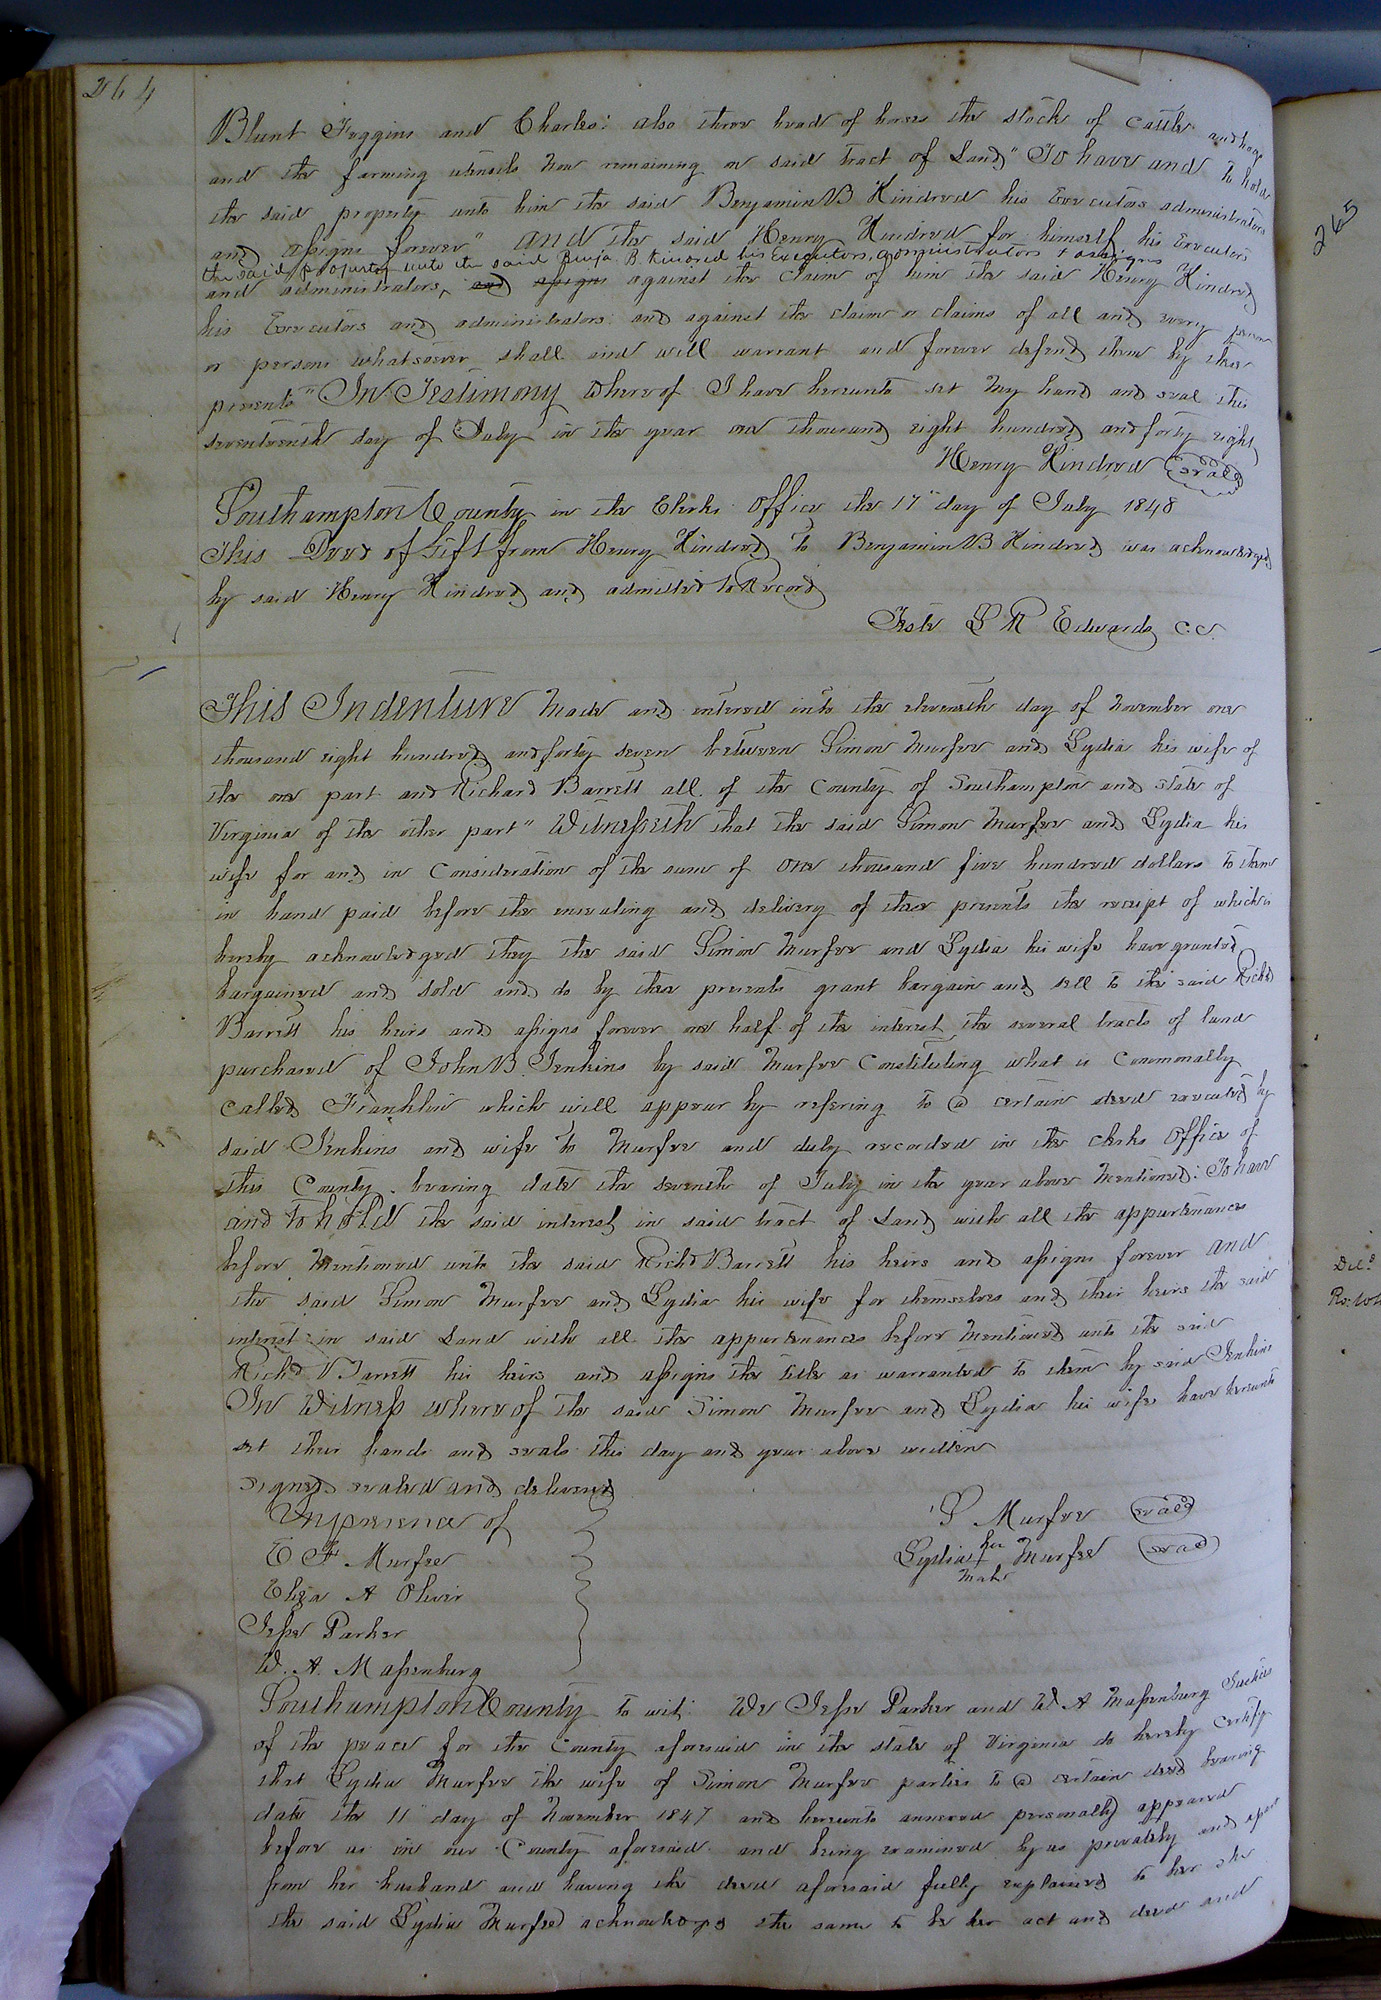 264
Blunt Foggins and Charles: also three head of horses the stock of cattle and hogs
and the farming utensils now remaining on said tract of Land" To have and to hold
the said property unto him the said Benjamin B Kindred his Executors administrators
and assigns forever" And the said Henry Kindred for himself his Executors
the said property unto the said Benja. B. Kindred his Executors, administrators & assigns
and administrators, and assigns against the claim of him the said Henry Kindred
his Executors and administrators and against the claim or claims of all and every person
or persons whatsoever shall and will warrant and forever defend them by these
presents" In Testimony whereof I have hereunto set my hand and seal this
seventeenth day of July in the year one thousand eight hundred and forty eight
Henry Kindred seal
Southampton County in the Clerks Office the 17" day of July 1848
This Deed of Gift from Henry Kindred to Benjamin B Kindred was acknowledged
by said Henry Kindred and admitted to Record
Teste L R Edwards c.c.
This Indenture Made and entered into the eleventh day of November one
thousand eight hundred and forty seven between Simon Murfee and Lydia his wife of
the one part and Richard Barrett all of the County of Southampton and State of
Virginia of the other part" Witnesseth that the said Simon Murfee and Lydia his
wife for and in Consideration of the sum of one thousand five hundred dollars to them
in hand paid before the ensealing and delivery of these presents the receipt of which is
hereby acknowledged they the said Simon Murfee and Lydia his wife have granted
bargained and sold and do by these presents grant bargain and sell to the said Richd
Barrett his heirs and assigns forever one half of the interest the several tracts of land
purchased of John B Jenkins by said Murfee Constituting what is Commonally
called Franklin which will appear by refering to a certain deed executed by
said Jenkins and wife to Murfee and duly recorded in the clerks office of
this County bearing date the seventh of July in the year above Mentioned: To have
and to hold the said interest in said tract of Land with all the appurtenances
before Mentioned unto the said Richd Barrett his heirs and assigns forever and
the said Simon Murfee and Lydia his wife for themselves and their heirs the said
interest in said Land with all the appurtenances before Mentioned unto the said
Richd Barrett his heirs and assigns the title as warranted to them by said Jenkins
In Witness whereof the said Simon Murfee and Lydia his wife have hereunto
set their hands and seals this day and year above written
Signed sealed and delivered
In presence of
S Murfee seal
E F Murfee
her
Lydia + Murfee seal
mark
Eliza A Oliver
Jesse Parker
W. A. Massenburg
Southampton County to wit: We Jesse Parker and W A Massenburg Justices
of the peace for the County aforesaid in the state of Virginia do hereby certify
that Lydia Murfee the wife of Simon Murfee parties to a certain deed bearing
date the 11" day of November 1847 and hereunto annexed personally appeared
before us in our County aforesaid and being examined by us privately and apart
from her husband and having the deed aforesaid fully explained to her she
the said Lydia Murfee acknowledge the same to be her act and deed and
265
Deld